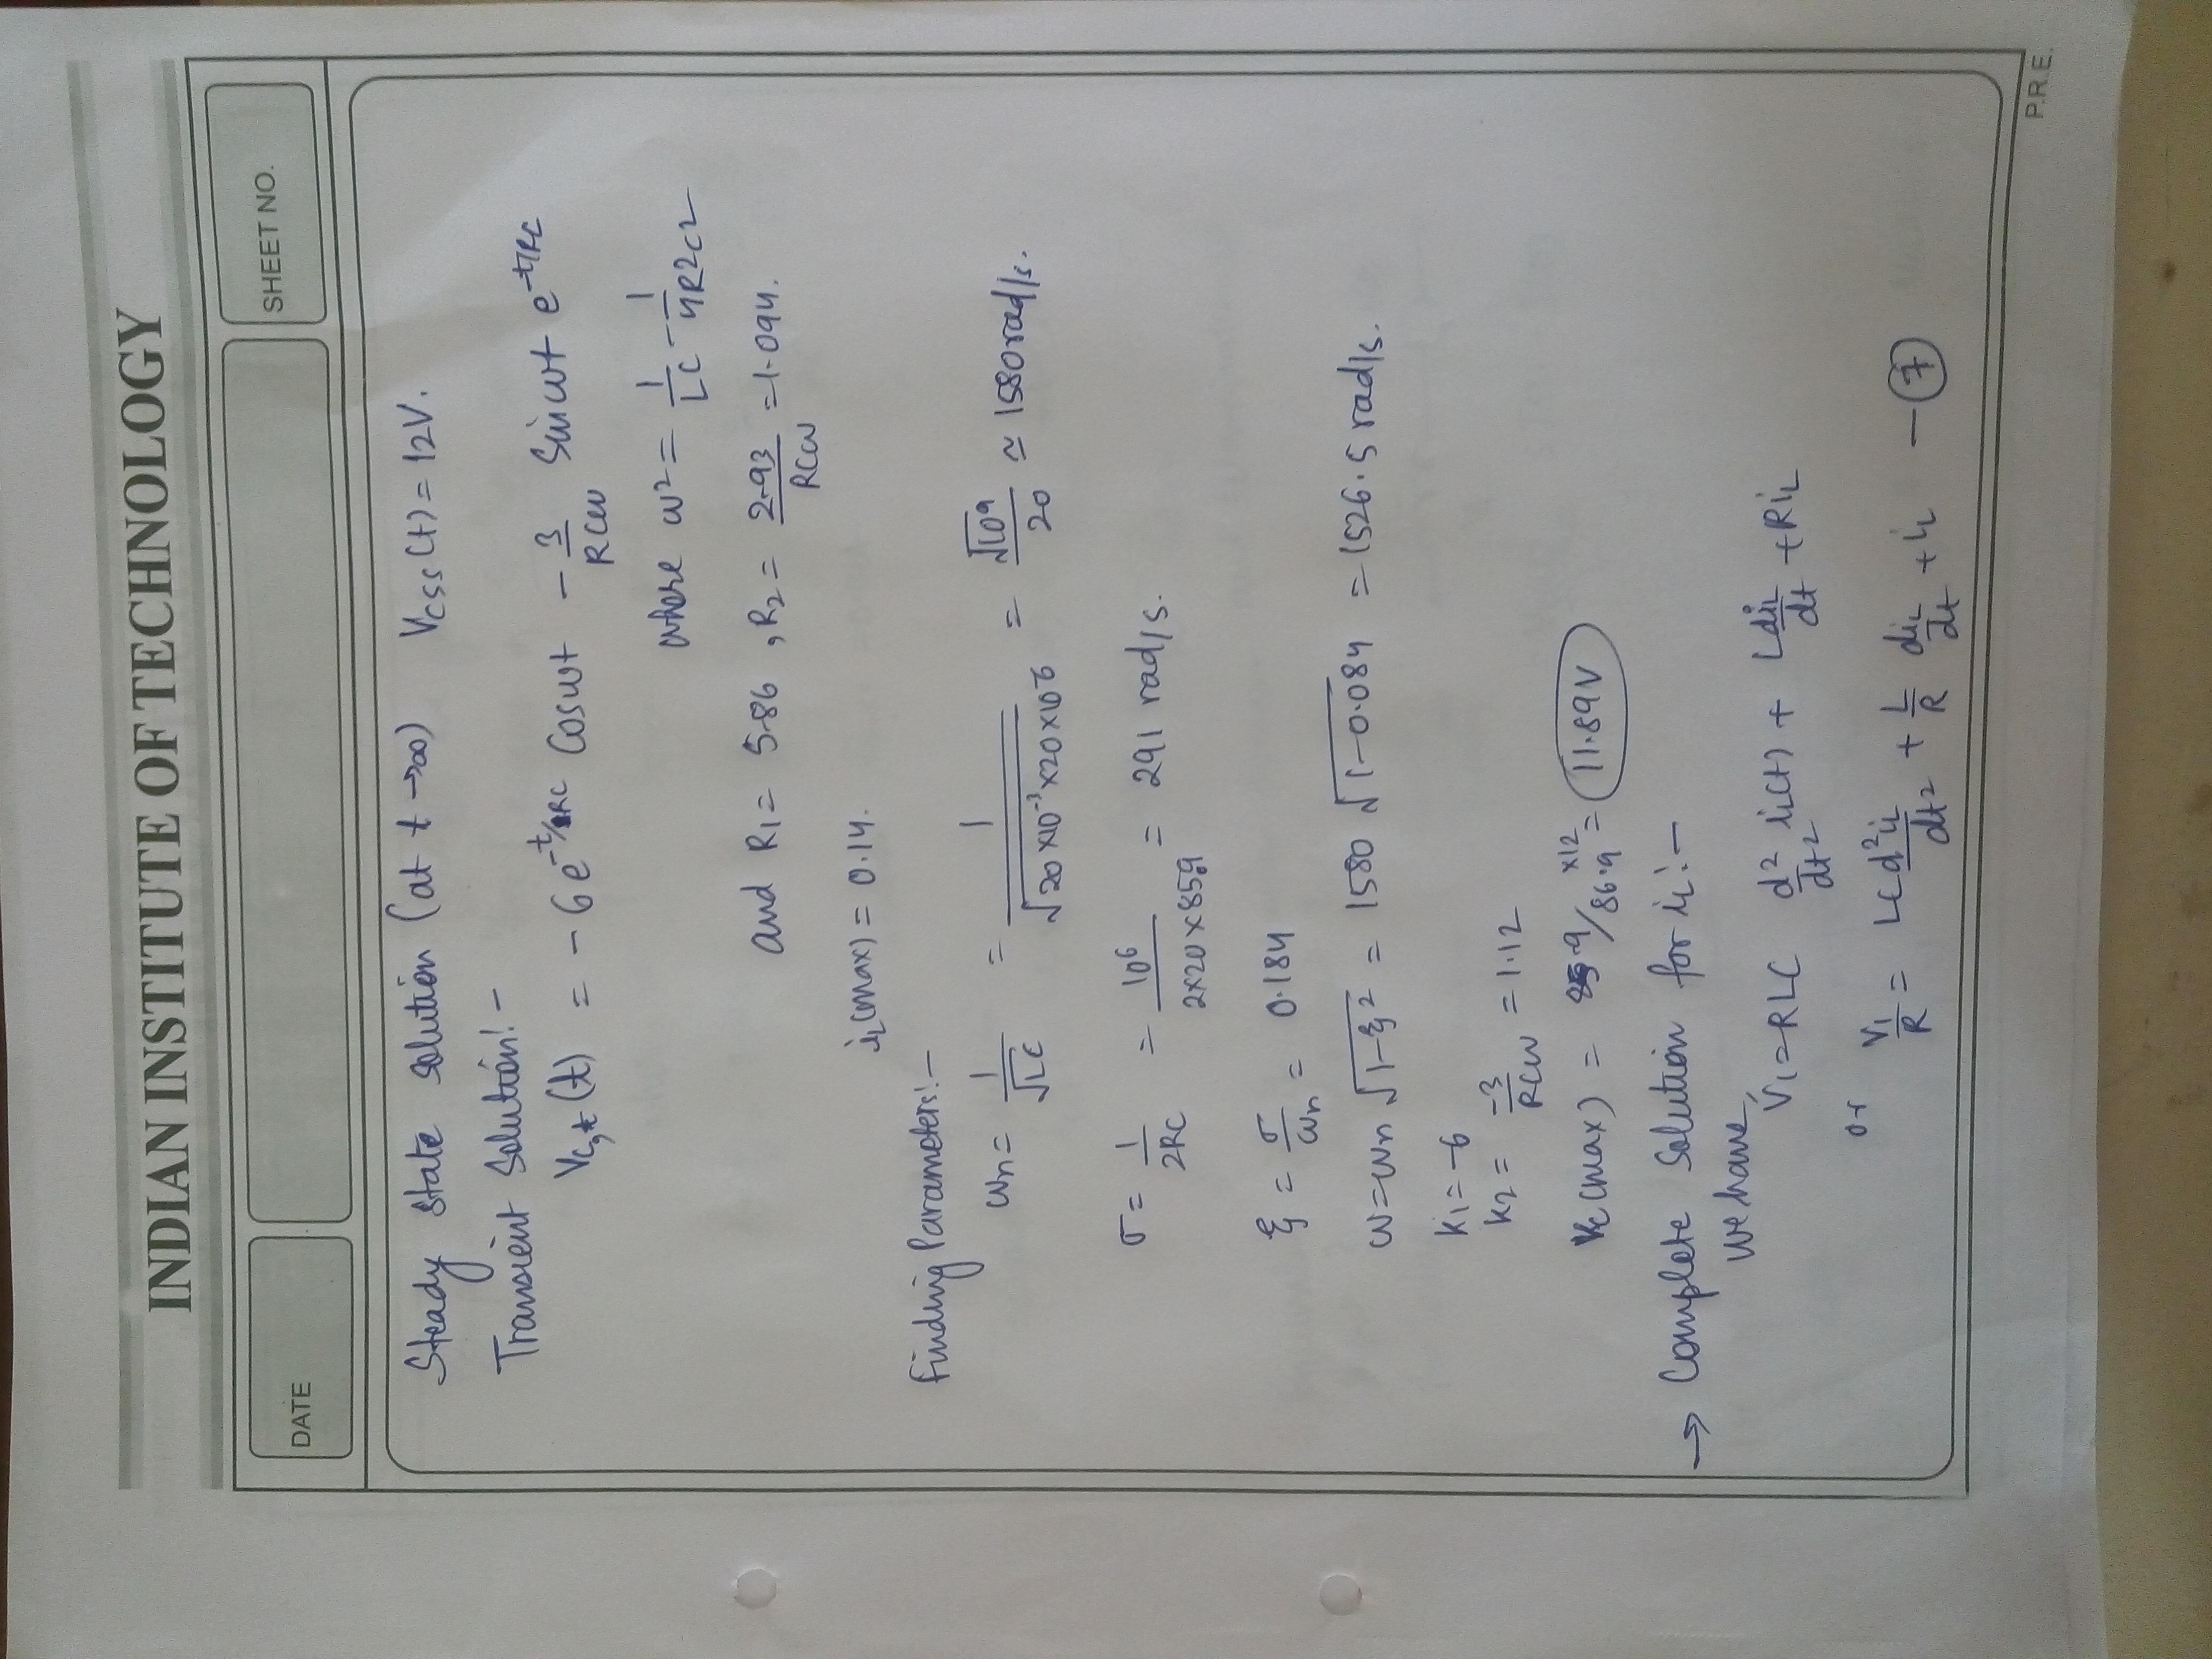 INDIAN INSTITUTE OF TECHNOLOGY
DATE
SHEET NO.
Steady state solution (at t →∞) Vcss(t) = 12V.
Transient Solution:-
Vc,t(t) = -6e^-t/2RC Coswt - 3/RCW Sinwt e^-t/RC
where w² = 1/LC - 1/4R2C2
and R1 = 5.86 , R2 = 2.93/RCW = 1.094.
iL(max) = 0.14.
Finding Parameters:-
wn = 1/√LC = 1/√20×10^-3×20×10^-6 = √10^9/20 ≃ 1580rad/s.
σ = 1/2RC = 10^6/2×20×85.9 = 291 rad/s.
ξ = σ/wn = 0.184
w=wn √1-ξ² = 1580 √1-0.084 = 1526.5 rad/s.
K1 = -6
K2 = -3/RCW = 1.12
Vc(max) = 85.9/86.9 ×12 = 11.89V
→ Complete Solution for iL:-
We have,
V1=RLC d²/dt2 iL(t) + L diL/dt + RiL
or V1/R = LC d²iL/dt2 + L/R diL/dt + iL — 7
P.R.E.